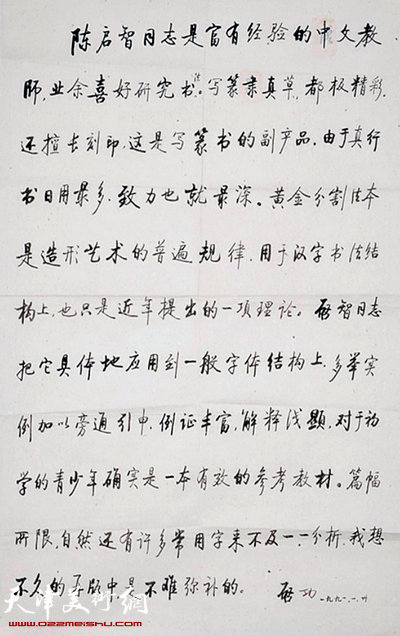 陈启智同志是富有经验的中文教
师,业余喜好研究书法。写篆隶真草,都极精彩,
还擅长刻印,这是写篆书的副产品,由于真行
书日用最多,致力也就最深。黄金分割法本
是造形艺术的普遍规律,用于汉字书法结
构上,也只是近年提出的一项理论。启智同志
把它具体地应用到一般字体结构上,多举实
例加以旁通引申,例证丰富,解释浅显,对于初
学的青少年确实是一本有效的参考教材。篇幅
所限,自然还有许多常用字来不及一一分析,我想
不久的再版中是不难弥补的。 启功 一九九一.一.廿
天津美术网
www.022meishu.com